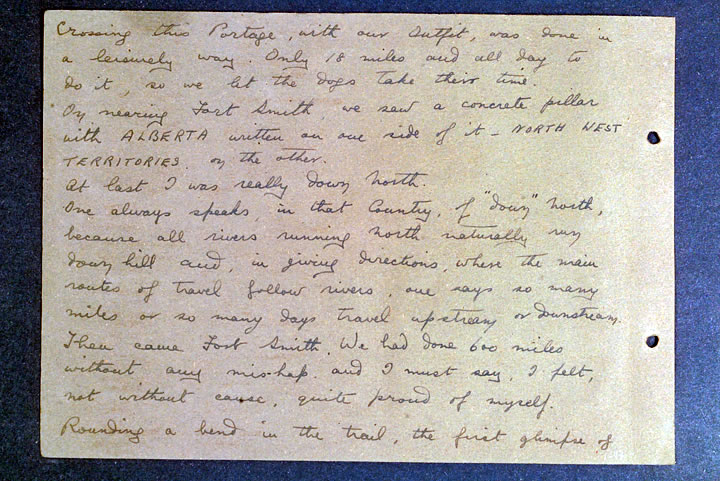 Crossing this Portage, with our outfit, was done in
a leisurely way. Only 18 miles and all day to
do it, so we let the dogs take their time.
On nearing Fort Smith we saw a concrete pillar
with ALBERTA written on one side of it - NORTH WEST
TERRITORIES on the other.
At last I was really down North.
One always speaks, in that Country, of "down" North,
because all rivers running North naturally run
down hill and, in giving directions, where the main
routes of travel follow rivers, one says so many
miles or so many days travel upstream or downstream.
Then came Fort Smith. We had done 600 miles
without any mis-hap. and I must say, I felt,
not without cause, quite proud of myself.
Rounding a bend in the trail, the first glimpse of